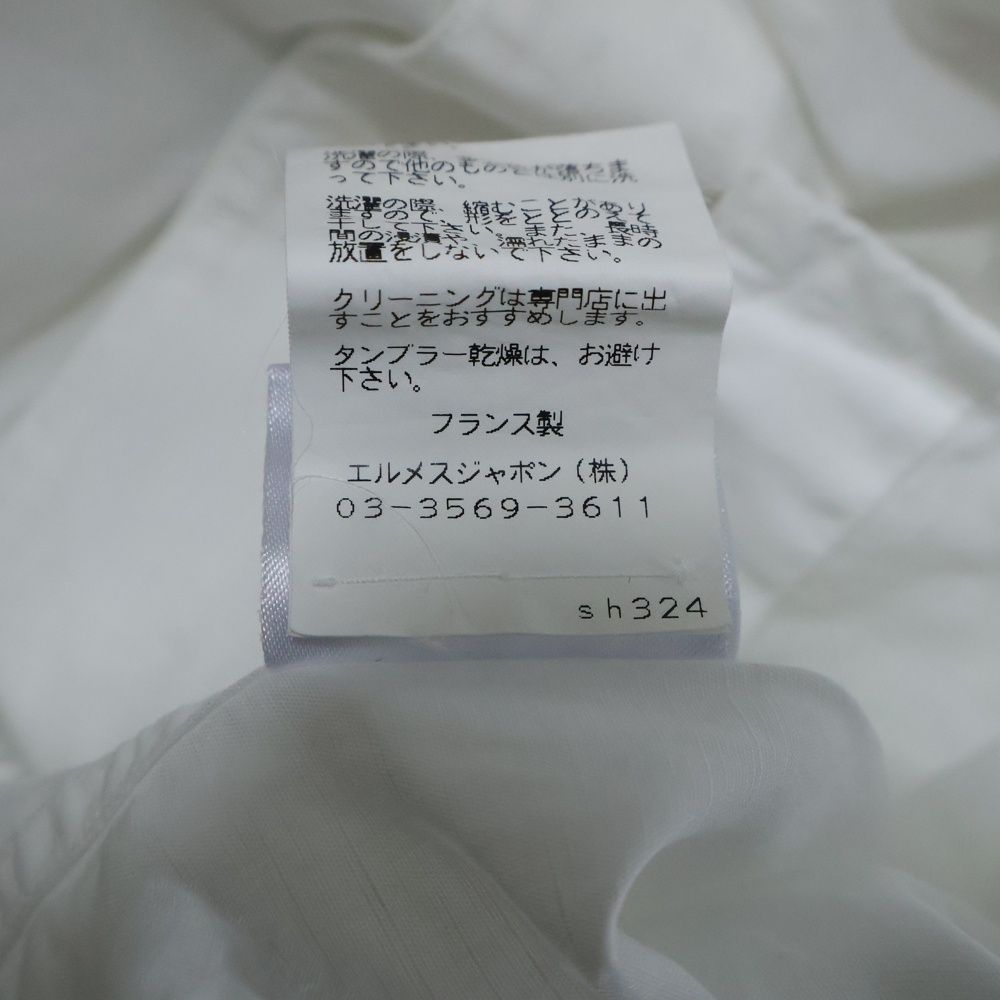 洗濯の際、
すので他のもの
って下さい。
洗濯の際、縮むことがあり
ますので、形をととのえて
干して下さい。また、長時
間の浸漬や、濡れたままの
放置をしないで下さい。
クリーニングは専門店に出
すことをおすすめします。
タンブラー乾燥は、お避け
下さい。
フランス製
エルメスジャポン(株)
03-3569-3611
sh324